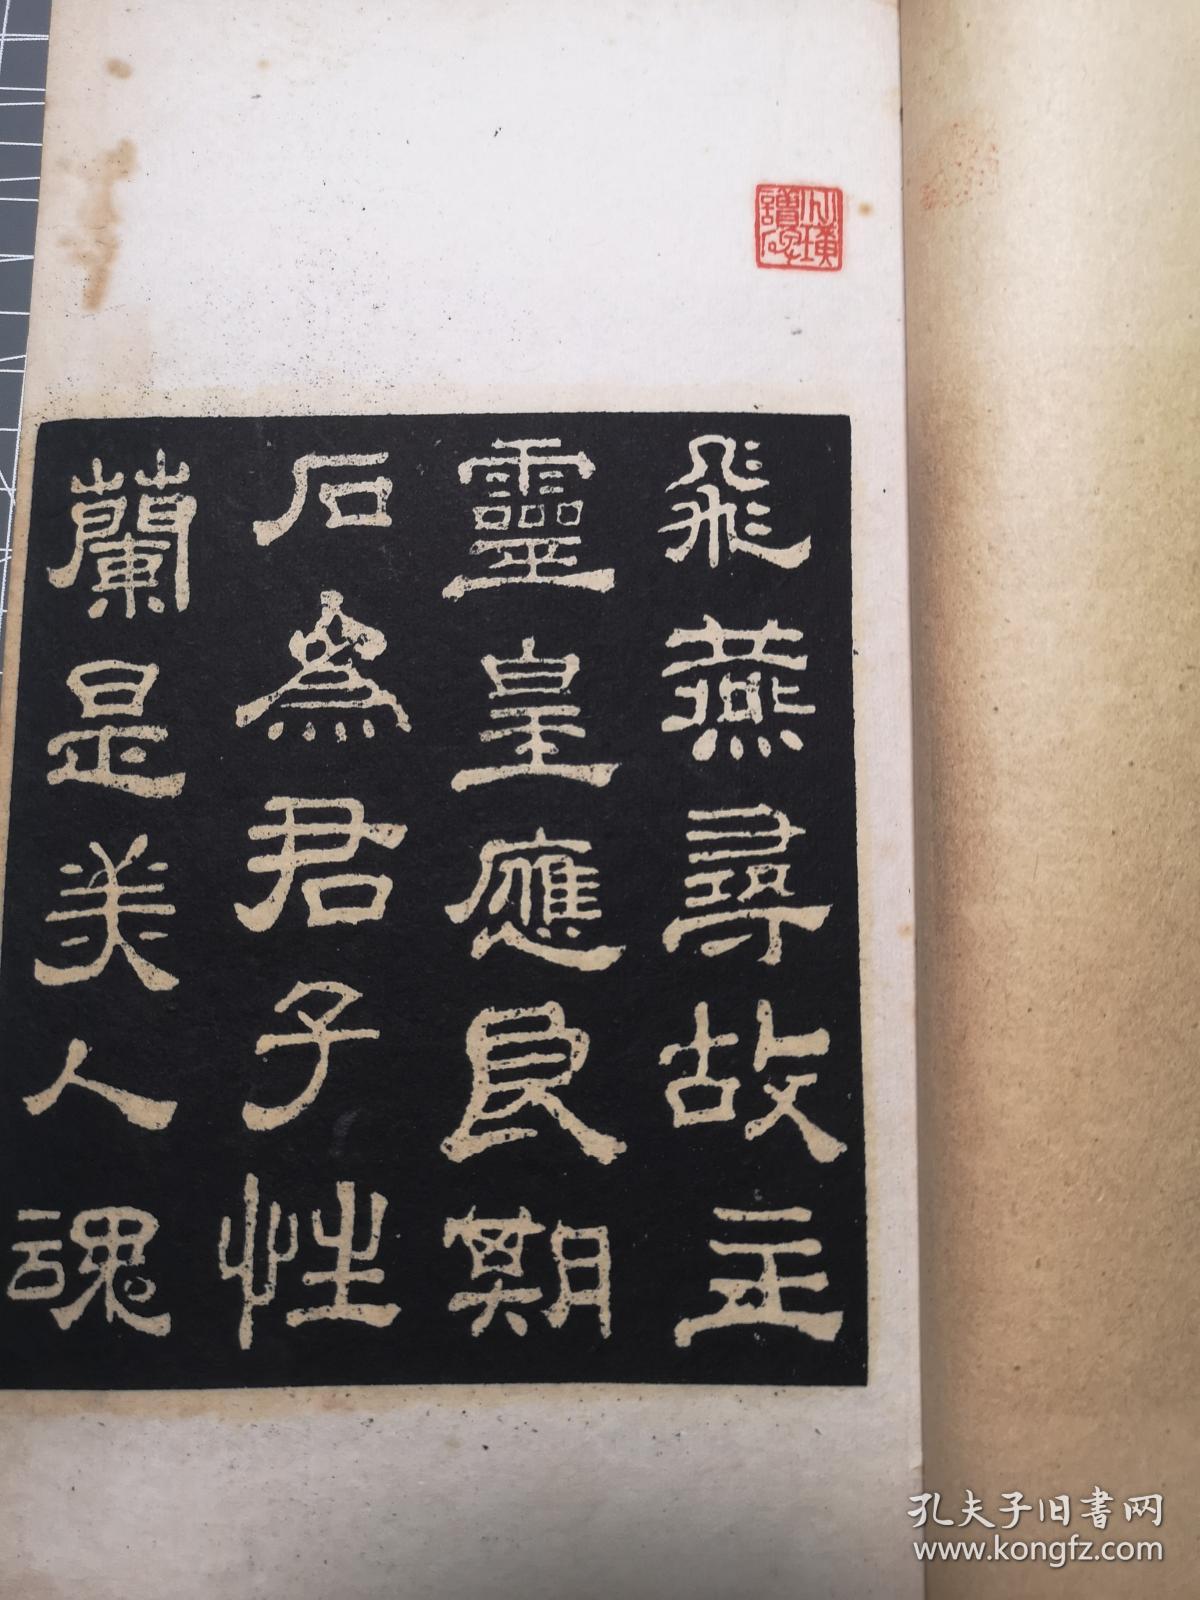 飛燕尋故主
靈皇應良期
石為君子性
蘭是美人魂
孔夫子旧书网
www.kongfz.com